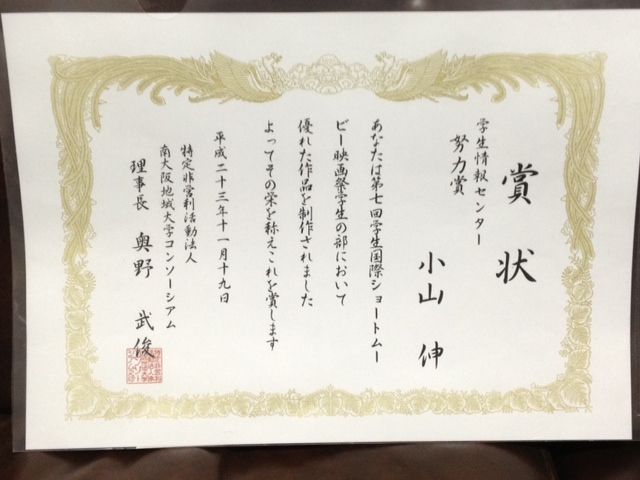 賞状
学生情報センター
努力賞
小山 伸
あなたは第七回学生国際ショートムー
ビー映画祭学生の部において
優れた作品を制作されました
よってその栄を称えこれを賞します
平成二十三年十一月十九日
特定非営利活動法人
南大阪地域大学コンソーシアム
理事長 奥野 武俊